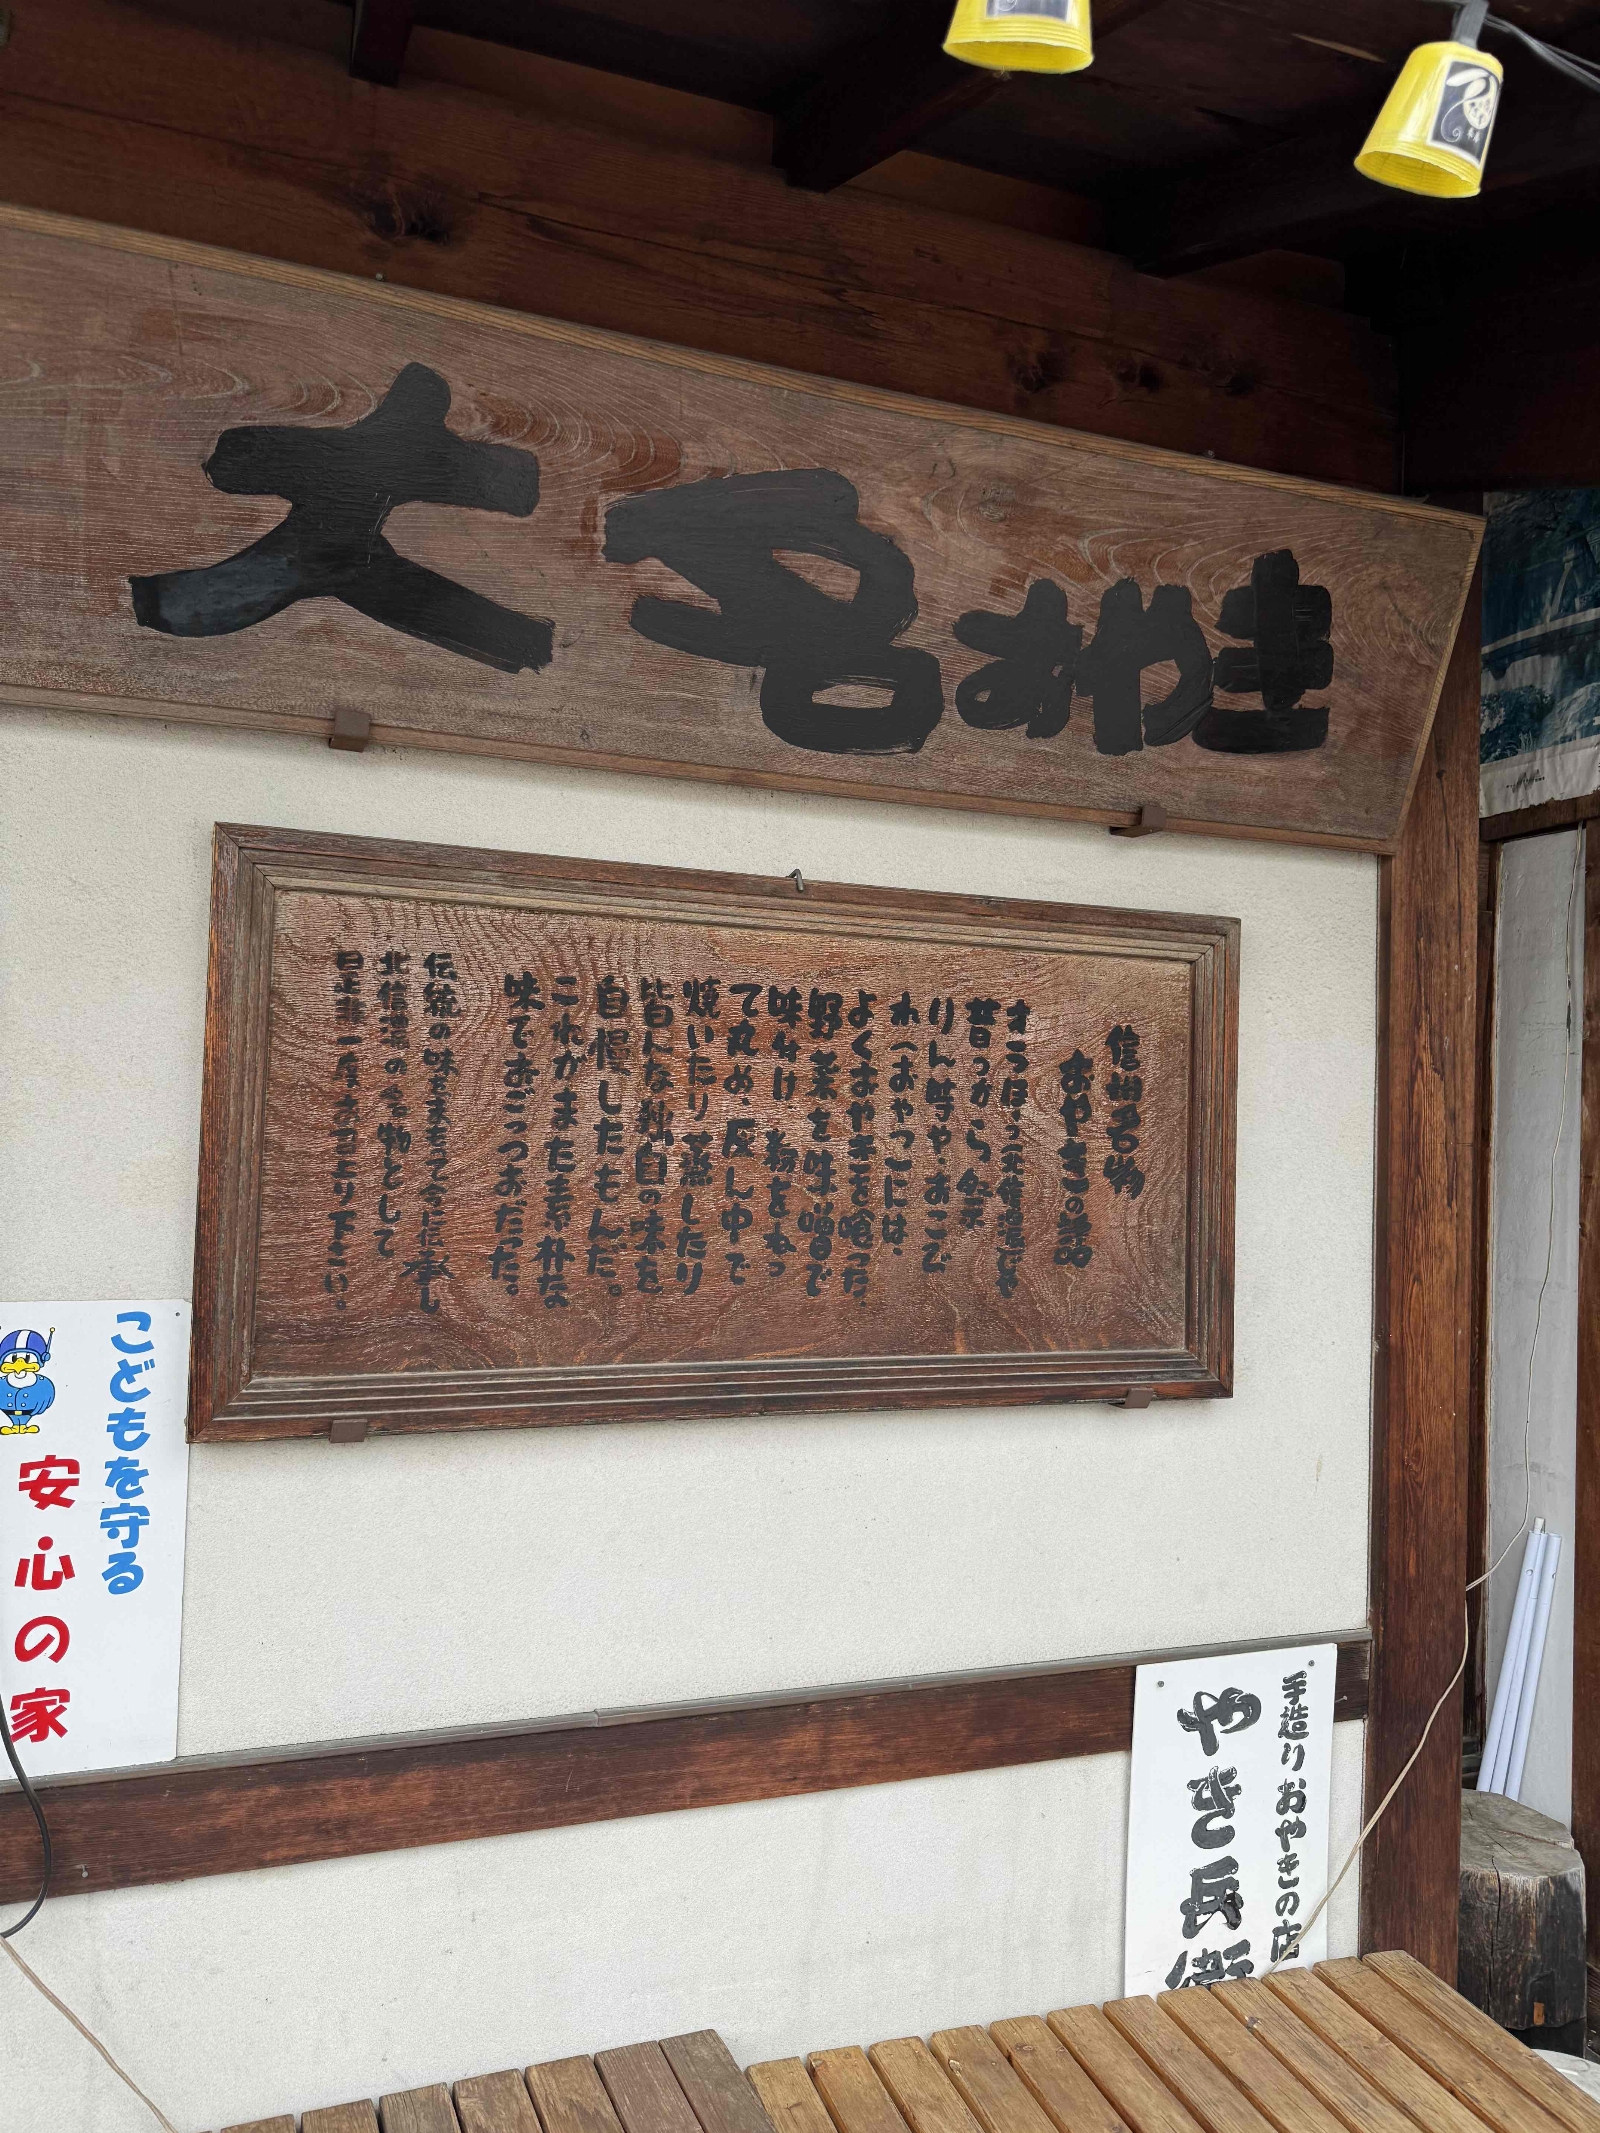 大名おやき
信州名物
おやきの話
オラほう(北信濃)じゃ
昔っから祭
りん時や、おこび
れ(おやつ)には、
よくおやきを喰った。
野菜を味噌で
味付け、粉をねっ
て丸め、灰ん中で
焼いたり蒸したり
皆んな独自の味を
自慢したもんだ。
これがまた素朴な
味でおごっつおだった。
伝統の味を未もって今に伝承し
北信濃の名物として
是非一度お召上り下さい。
こどもを守る
安心の家
手造りおやきの店
やき兵衛